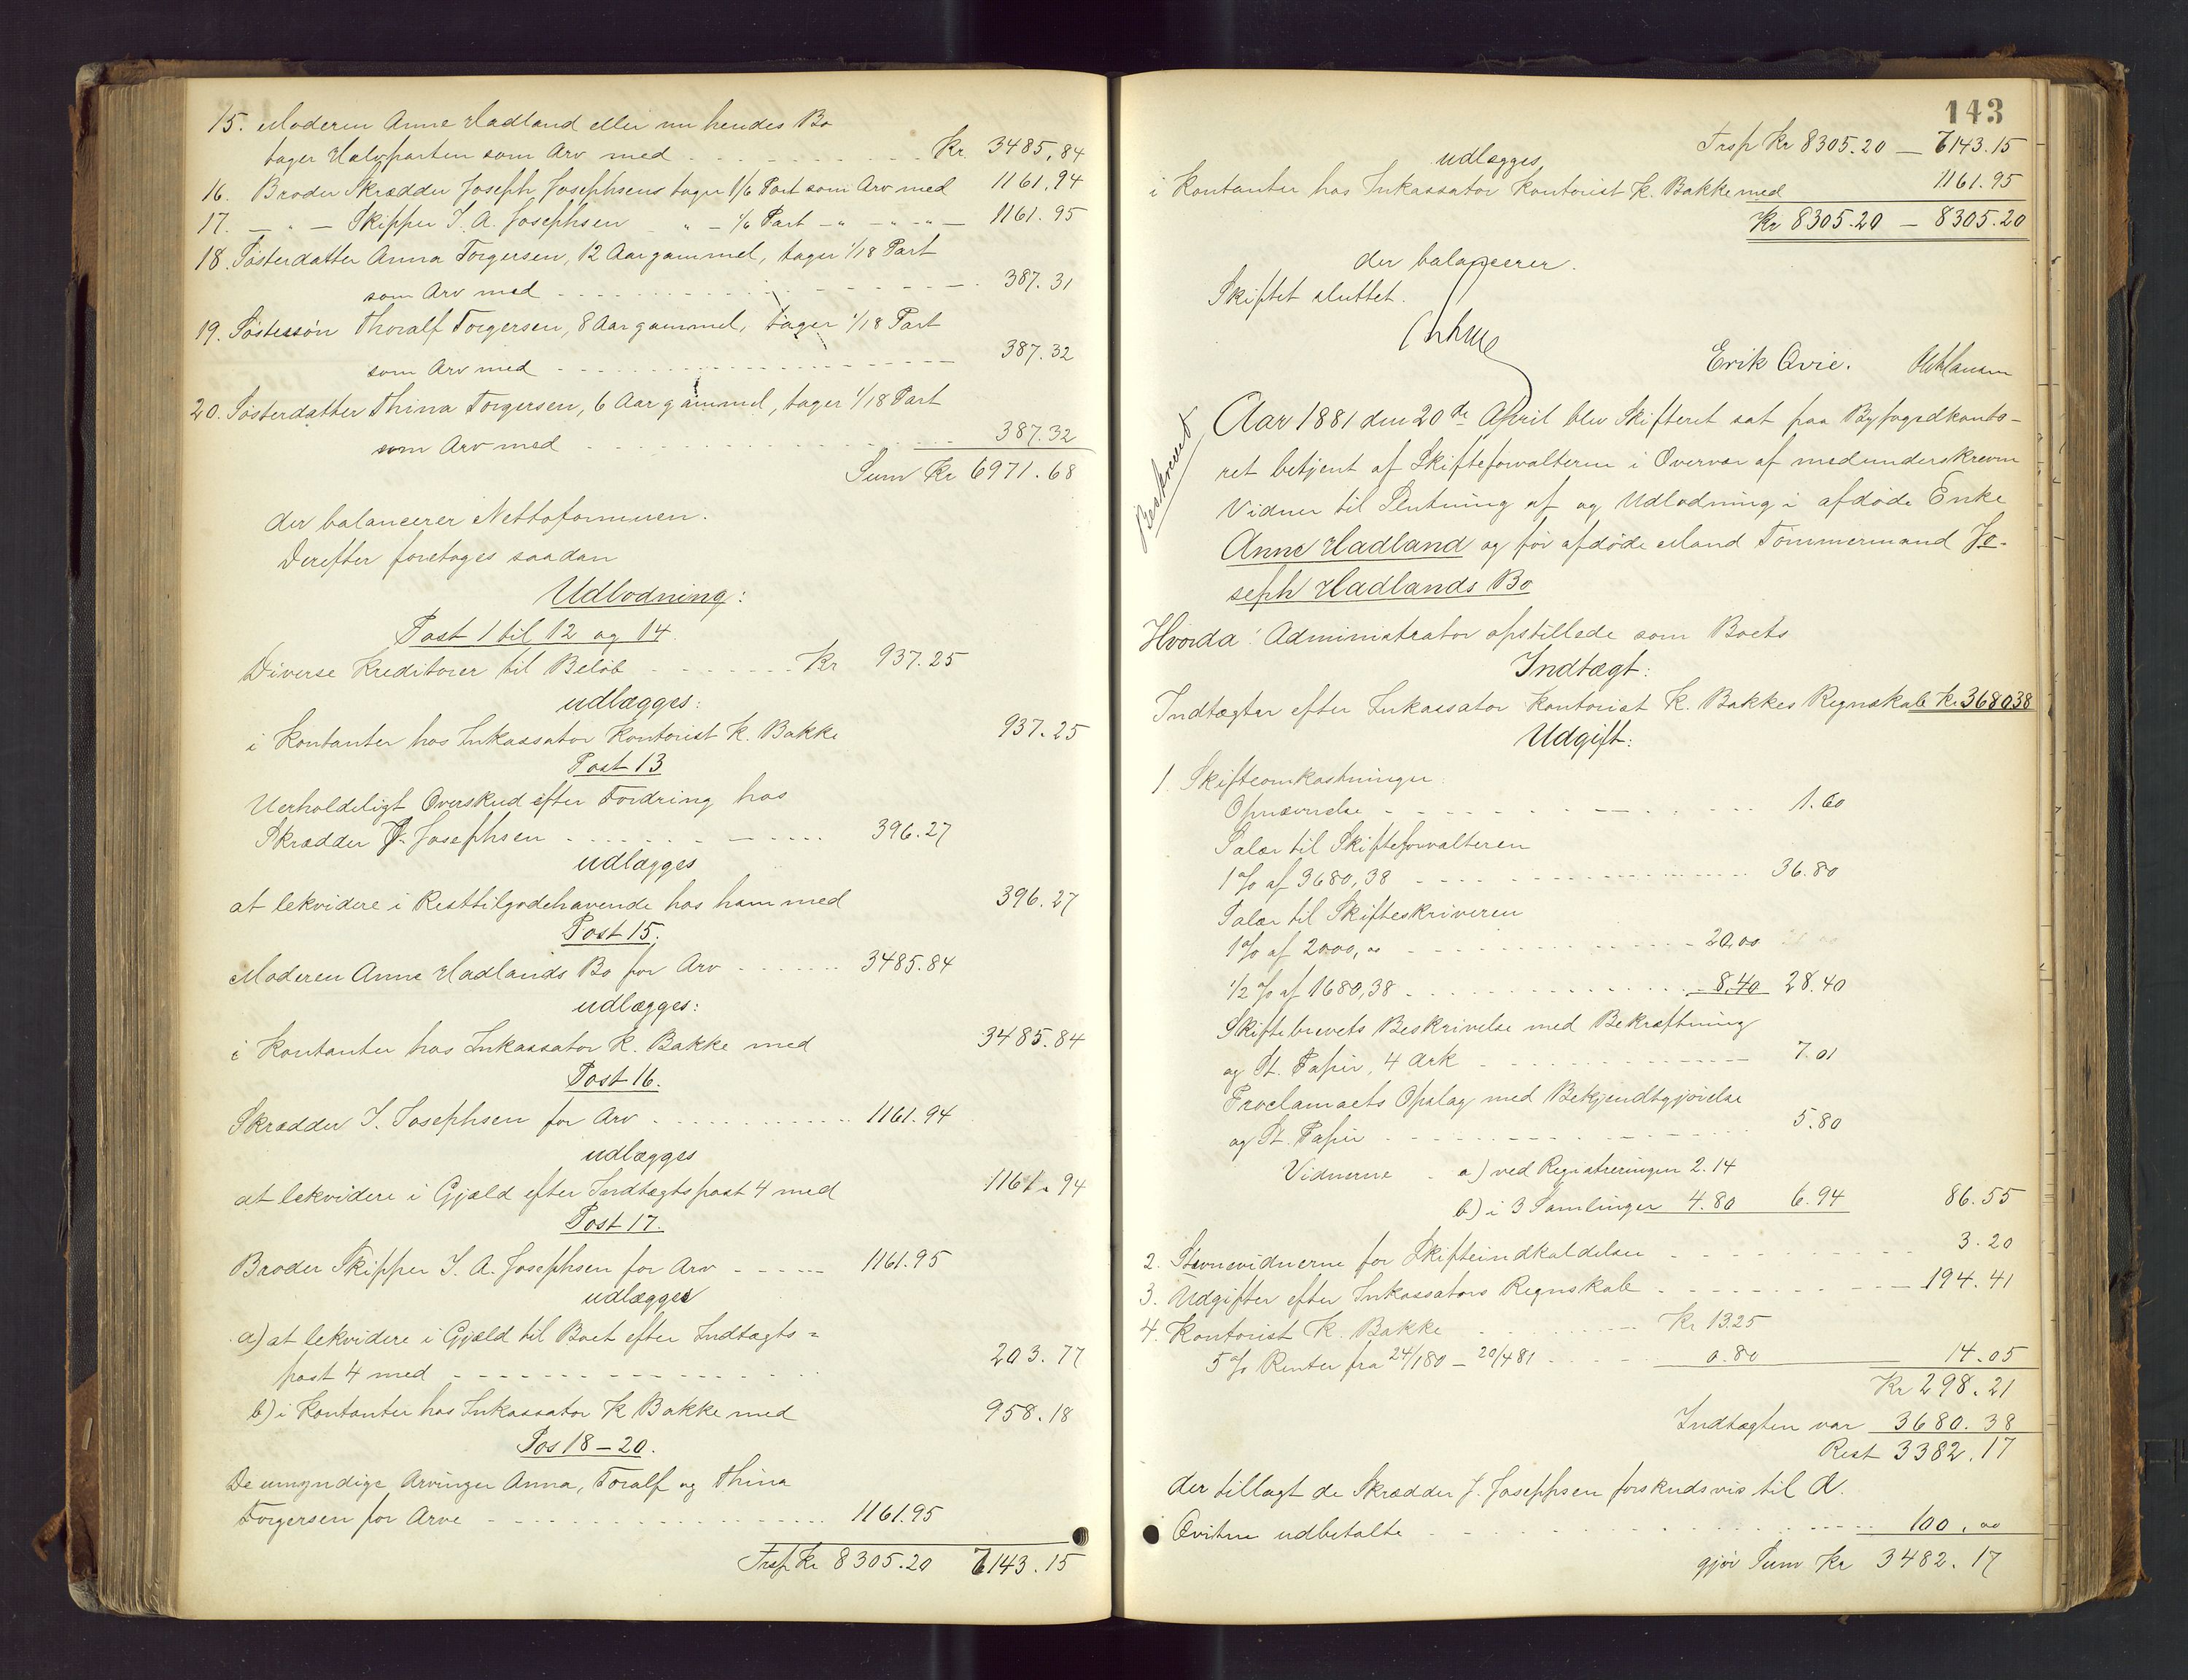 15. Moderen Anne Hadland eller nu hendes Bo
tager Halvparten som Arv med Kr. 3485,84
16. Broder Skrædder Joseph Josephsens tager 1/6 Part som Arv med 1161.94
17. — " — Skipper I. A. Josephsen " — 1/6 Part — " — " — " — 1161.95
18. Søsterdatter Anna Torgersen, 12 Aar gammel, tager 1/18 Part
som Arv med 387.31
19. Søstersøn Thoralf Torgersen, 8 Aar gammel, tager 1/18 Part
som Arv med 387.32
20. Søsterdatter Thina Torgersen, 6 Aar gammel, tager 1/18 Part
som Arv med 387.32
Sum Kr 6971.68
der balancerer Nettoformuen.
Derefter foretoges saadan
Udlodning:
Post 1 til 12 og 14.
Diverse Kreditorer til Beløb Kr 937.25
udlægges:
i Kontanter hos Inkassator Kontorist K. Bakke 937.25
Post 13
Uerholdeligt Overskud efter Fordring hos
Skrædder J. Josephsen 396.27
udlægges
at lekvidere i Resttilgodehavende hos ham med 396.27
Post 15.
Moderen Anne Hadlands Bo for Arv 3485.84
udlægges:
i Kontanter hos Inkassator K. Bakke med 3485.84
Post 16.
Skrædder I. Josephsen for Arv 1161.94
udlægges
at lekvidere i Gjæld efter Indtægtspost 4 med 1161.94
Post 17.
Broder Skipper I. A. Josephsen for Arv 1161.95
udlægges
a) at lekvidere i Gjæld til Boet efter Indtægts=
post 4 med 203.77
b) i Kontanter hos Inkassator K Bakke med 958.18
Pos 18–20.
De umyndige Arvinger Anna, Toralf og Thina
Torgersen for Arve 1161.95
Trsp Kr 8305.20 7143.15
143
Trsp Kr 8305.20 — 7143.15
udlægges
i Kontanter hos Inkassator Kontorist K. Bakke med 1161.95
Kr 8305.20 — 8305.20
der balancerer.
Skiftet sluttet.
Erik Qvie.
Beskrevet
Aar 1881 den 20de April blev Skifteret sat paa Byfogedkonto-
ret betjent af Skifteforvalteren i Overvær af medunderskrevne
Vidner til Slutning af og Udlodning i afdøde Enke
Anne Hadland og før afdøde Mand Tømmermand Jo-
seph Hadlands Bo
Hvorda: Administrator opstillede som Boets
Indtægt:
Indtægter efter Inkassator Kontorist K. Bakkes Regnskab Kr 3680.38
Udgift:
1. Skifteomkostninger
Opnævnelse 1.60
Salær til Skifteforvalteren
1 % af 3680,38 36.80
Salær til Skifteskriveren
1 % af 2000,00 20,00
1/2 % af 1680,38 8.40 28.40
Skiftebrevets Beskrivelse med Bekræftning
og St. Papir, 4 Ark 7.01
Proclamaets Opslag med Bekjendtgjørelse
og St. Papir 5.80
Vidnerne a) ved Registreringen 2.14
b) i 3 Samlinger 4.80 6.94 86.55
2. Stevnevidnerne for Skifteindkaldelsen 3.20
3. Udgifter efter Inkassators Regnskab 194.41
4. Kontorist K. Bakke Kr 13.25
5 % Renter fra 24/1 80 – 20/4 81 0.80 14.05
Kr 298.21
Indtægten var 3680.38
Rest 3382.17
der tillagt de Skrædder J. Josephsen forskudsvis til A.
Qvitne udbetalte 100,00
gjør Sum Kr 3482.17